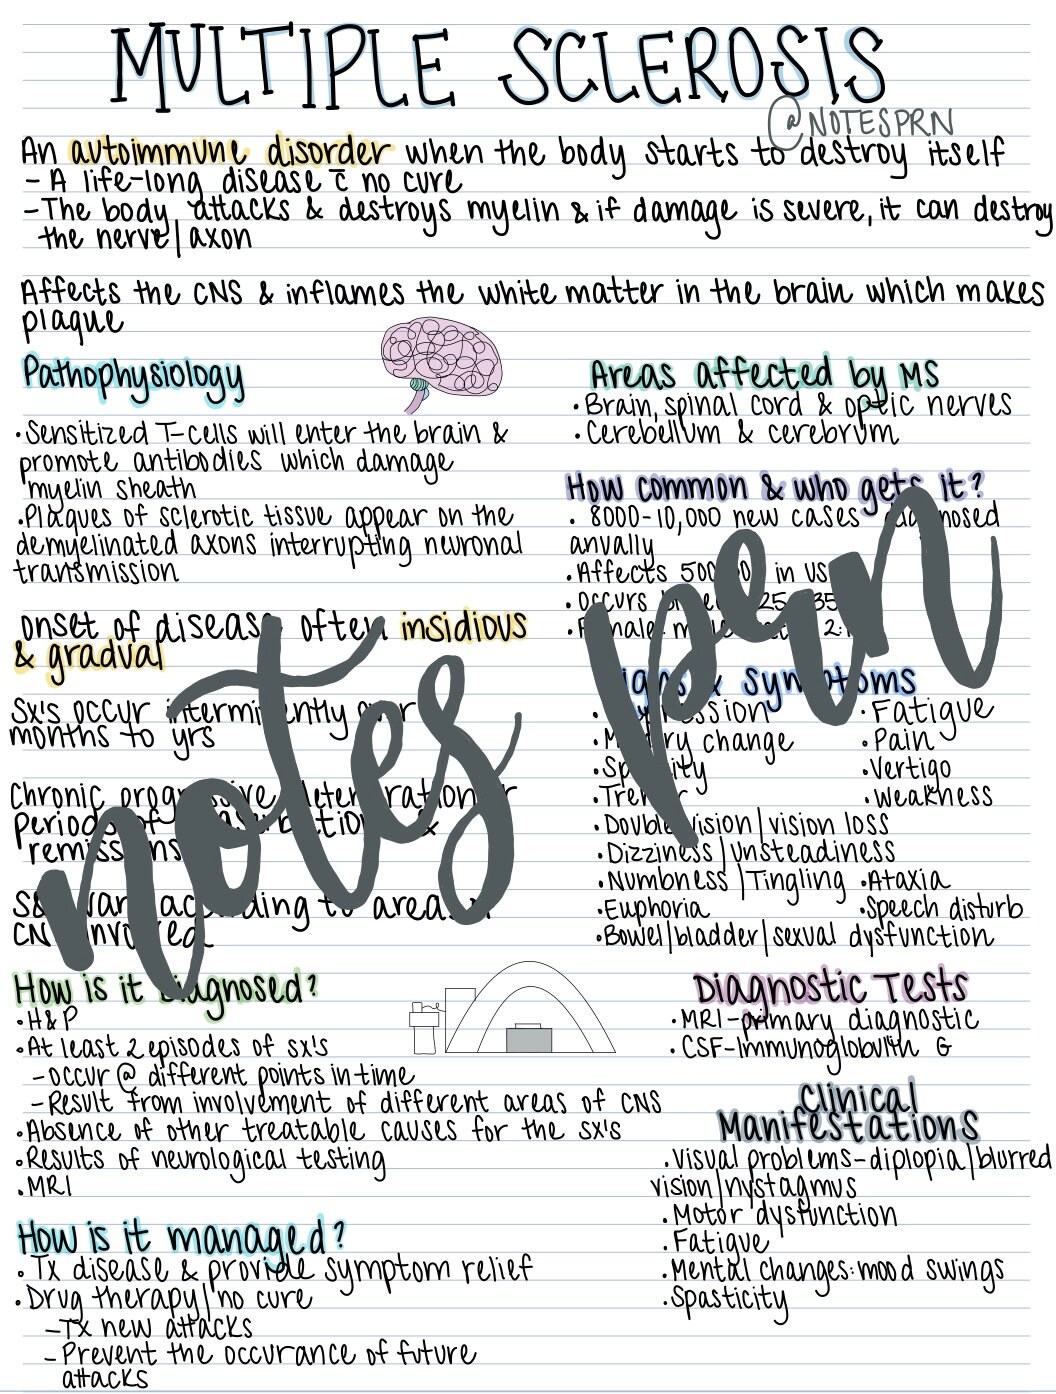 MULTIPLE SCLEROSIS
@NOTESPRN
An autoimmune disorder when the body starts to destroy itself
- A life-long disease c̄ no cure
- The body attacks & destroys myelin & if damage is severe, it can destroy
the nerve/axon
Affects the CNS & inflames the white matter in the brain which makes
plaque
Pathophysiology
• Sensitized T-cells will enter the brain &
promote antibodies which damage
myelin sheath
• Plaques of sclerotic tissue appear on the
demyelinated axons interrupting neuronal
transmission
onset of disease often insidious
& gradual
Sx's occur intermittently over
months to yrs
Chronic progressive deterioration
periods of &
remissions
vary according to areas
CNS involved
How is it diagnosed?
• H&P
• At least 2 episodes of sx's
- occur @ different points in time
- Result from involvement of different areas of CNS
• Absence of other treatable causes for the sx's
• Results of neurological testing
• MRI
How is it managed?
• Tx disease & provide symptom relief
• Drug therapy/no cure
- Tx new attacks
- Prevent the occurance of future
attacks
Areas affected by MS
• Brain, spinal cord & optic nerves
• Cerebellum & cerebrum
How common & who gets it?
• 8000-10,000 new cases diagnosed
anually
• Affects in US
• Occurs
•
Signs & symptoms
• Depression • Fatigue
• Memory change • Pain
• Spasticity • Vertigo
• Tremor • Weakness
• Double vision/vision loss
• Dizziness/unsteadiness
• Numbness/Tingling • Ataxia
• Euphoria • Speech disturb
• Bowel/bladder/sexual dysfunction
Diagnostic Tests
• MRI-primary diagnostic
• CSF-Immunoglobulin G
Clinical
Manifestations
• Visual problems-diplopia/blurred
vision/nystagmus
• Motor dysfunction
• Fatigue
• Mental changes: mood swings
• Spasticity
notes prn